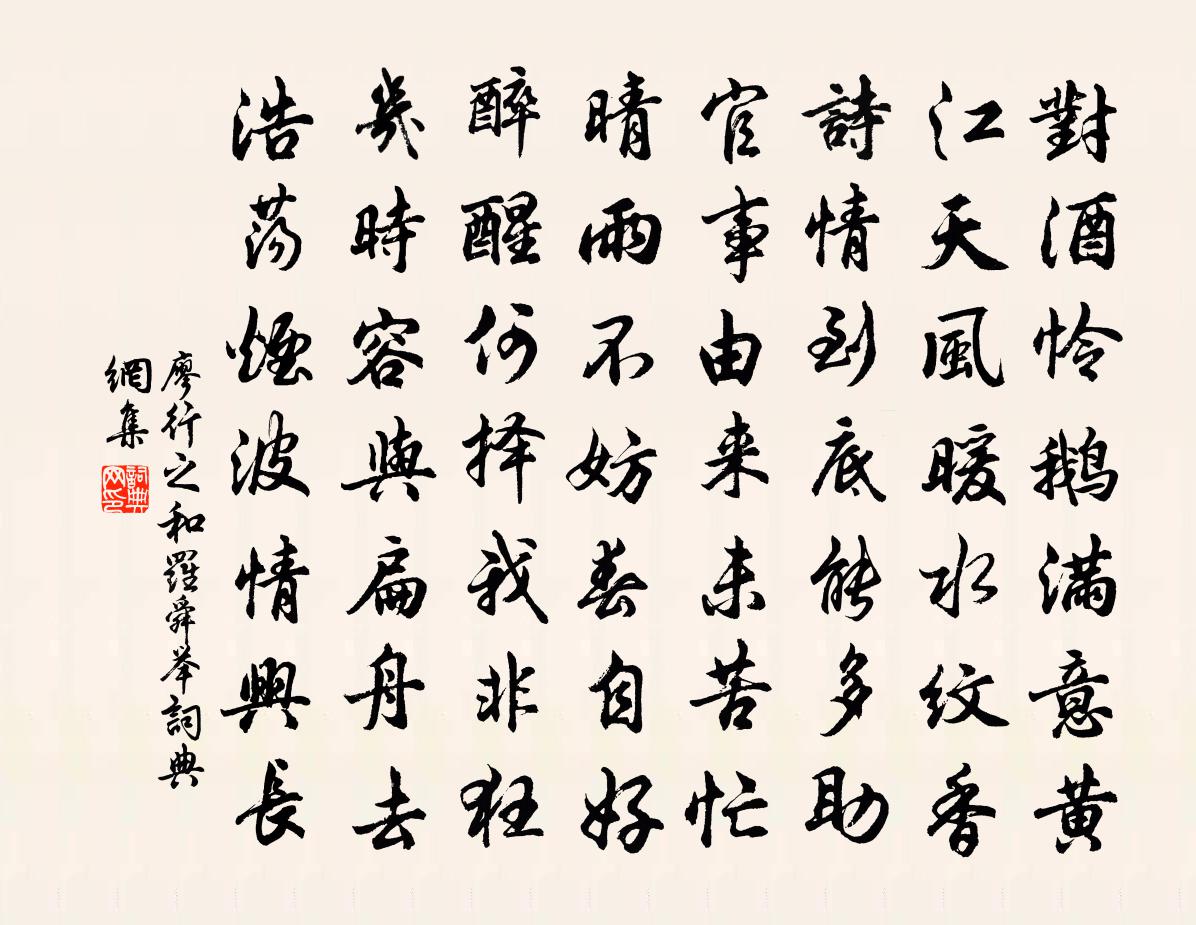 對酒怜鹅满意黄
江天風暖水纹香
詩情到底能多助
官事由来未苦忙
晴雨不妨春自好
醉醒何择我非狂
幾時容與扁舟去
浩荡煙波情興長
廖行之和羅舜举詞典
網集
詞典
网印